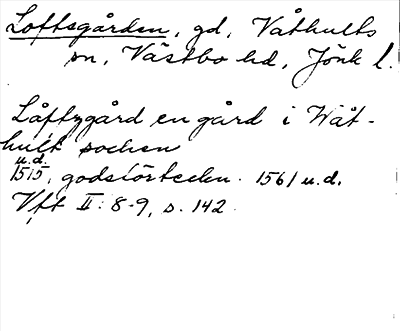 Loftsgården, gd, Våthults
sn, Västbo hd, Jönk l.
Låftzgård en gård i Wåt-
hult sochen
u.d.
1515, godsförteckn. 1561 u.d.
Vft II: 8-9, s. 142